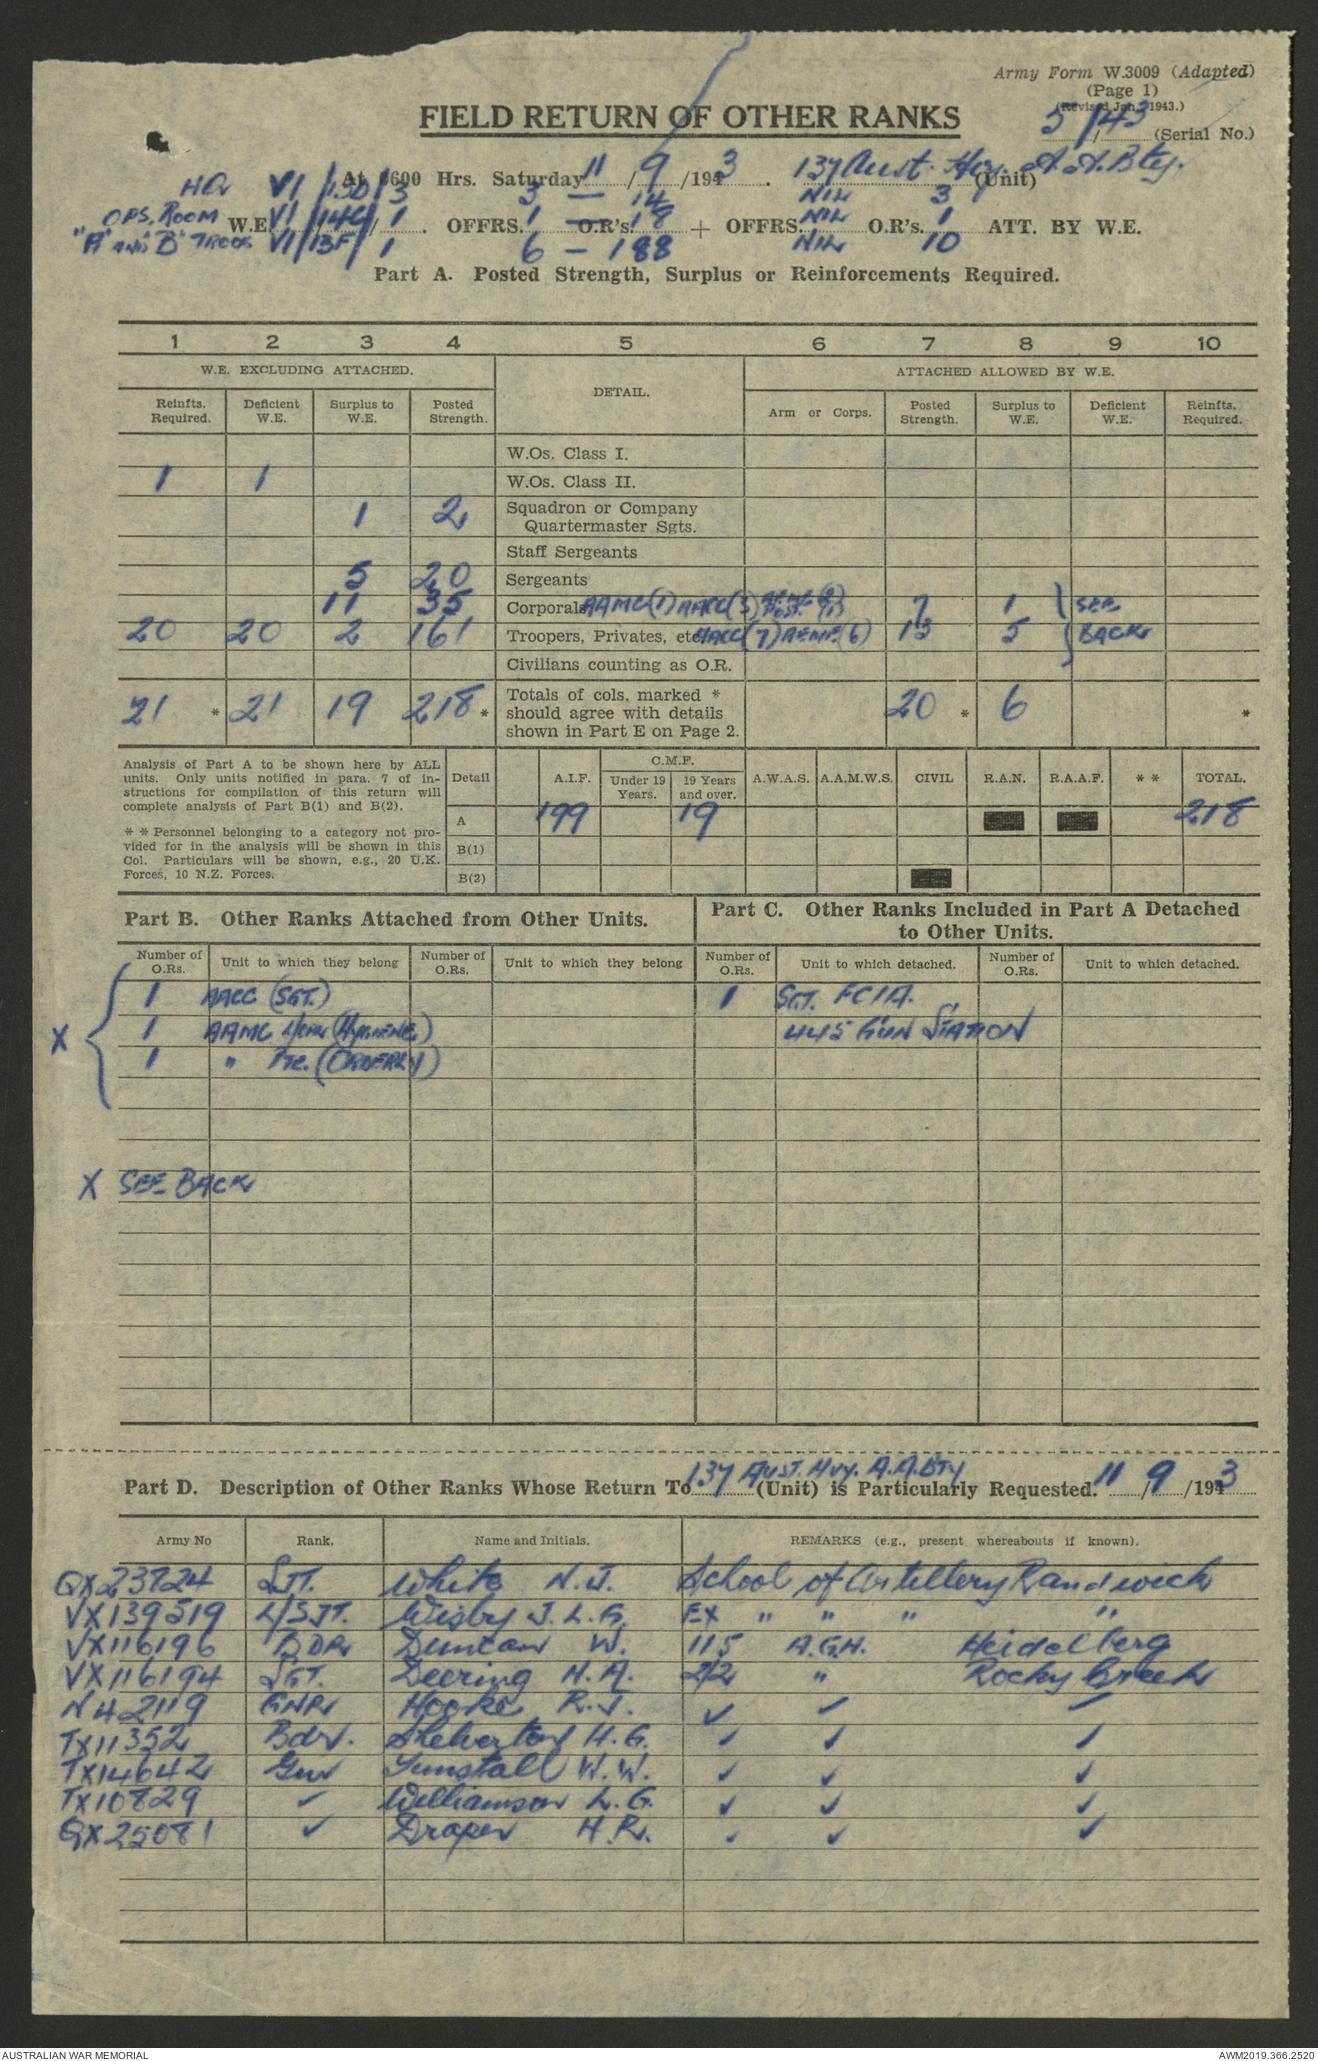 Army Form W.3009 (Adapted)
(Page 1)
(Revised Jan., 1943.)
FIELD RETURN OF OTHER RANKS
5/43 (Serial No.)
At 0600 Hrs. Saturday 11/9/1943. 137 Aust. Hvy. A.A. Bty. (Unit)
HQ VI/13D/3 3 — 14 NIL 3
OPS. ROOM W.E. VI/14C/1. OFFRS. 1 — O.R's. 18 + OFFRS. NIL O.R's. 1 ATT. BY W.E.
"A" and "B" TROOPS VI/13F/1 6 — 188 NIL 10
Part A. Posted Strength, Surplus or Reinforcements Required.
1 2 3 4 5 6 7 8 9 10
W.E. EXCLUDING ATTACHED. DETAIL. ATTACHED ALLOWED BY W.E.
Reinfts. Required. Deficient W.E. Surplus to W.E. Posted Strength. Arm or Corps. Posted Strength. Surplus to W.E. Deficient W.E. Reinfts. Required.
W.Os. Class I.
1 1 W.Os. Class II.
1 2 Squadron or Company Quartermaster Sgts.
Staff Sergeants
5 20 Sergeants
11 35 Corporals AAMC (1) AACC (3) 7 1 SEE
20 20 2 161 Troopers, Privates, etc. AACC (7) AEME (6) 13 5 BACK
Civilians counting as O.R.
21 * 21 19 218 * Totals of cols. marked * should agree with details shown in Part E on Page 2. 20 * 6 *
Analysis of Part A to be shown here by ALL
units. Only units notified in para. 7 of in-
structions for compilation of this return will
complete analysis of Part B(1) and B(2).
* * Personnel belonging to a category not pro-
vided for in the analysis will be shown in this
Col. Particulars will be shown, e.g., 20 U.K.
Forces, 10 N.Z. Forces.
Detail A.I.F. C.M.F. Under 19 Years. 19 Years and over. A.W.A.S. A.A.M.W.S. CIVIL R.A.N. R.A.A.F. * * TOTAL.
A 199 19 218
B(1)
B(2)
Part B. Other Ranks Attached from Other Units.
Part C. Other Ranks Included in Part A Detached
to Other Units.
Number of O.Rs. Unit to which they belong Number of O.Rs. Unit to which they belong Number of O.Rs. Unit to which detached. Number of O.Rs. Unit to which detached.
1 AACC (SGT.) 1 SGT. FCIA.
X 1 AAMC L/CPL (HYGIENE) 445 GUN STATION
1 " PTE. (ORDERLY)
X SEE BACK
Part D. Description of Other Ranks Whose Return To 137 AUST. HVY. A.A. BTY (Unit) is Particularly Requested. 11/9/1943
Army No Rank. Name and Initials. REMARKS (e.g., present whereabouts if known).
QX23724 SJT. White N.J. School of Artillery Randwick
VX139519 L/SJT. Wisby J.L.G. EX " " " "
VX116196 BDR Duncan W. 115 A.G.H. Heidelberg
VX116194 SGT. Deering H.A. 2/2 " Rocky Creek
N42119 GNR Hooke R.J. ✓ ✓ ✓
TX11352 Bdr. Shelverton H.G. ✓ ✓ ✓
TX14642 Gnr Tunstall W.W. ✓ ✓ ✓
TX10829 ✓ Williamson L.G. ✓ ✓ ✓
QX25081 ✓ Draper H.R. ✓ ✓ ✓
AUSTRALIAN WAR MEMORIAL AWM2019.366.2520